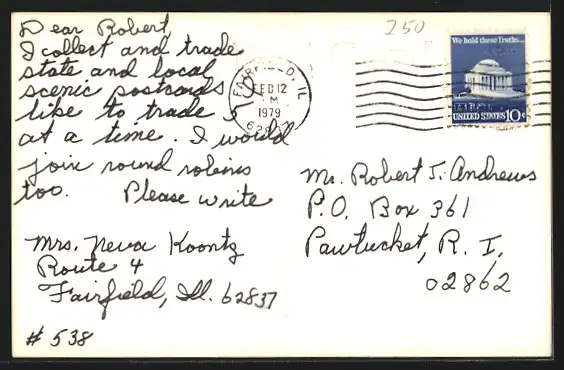 Dear Robert,
I collect and trade
state and local
scenic postcards
like to trade 5
at a time. I would
join round robins
too. Please write
Mrs. Neva Koontz
Route 4
Fairfield, Ill. 62837
# 538
250
FAIRFIELD, IL
FEB 12
M
1979
628
We hold these Truths...
UNITED STATES 10c
Mr. Robert J. Andrews
P.O. Box 361
Pawtucket, R. I.
02862